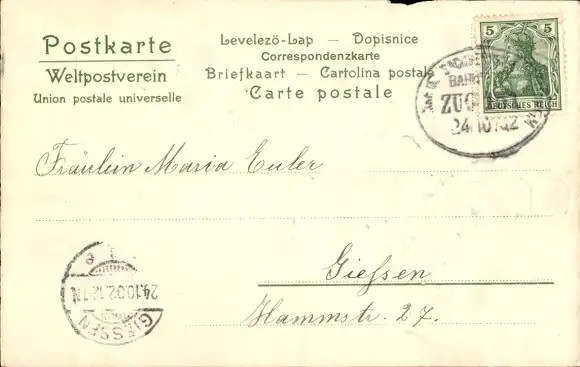 Postkarte
Weltpostverein
Union postale universelle
Levelező-Lap — Dopisnice
Correspondenzkarte
Briefkaart — Cartolina postale
Carte postale
5 5
DEUTSCHES REICH
BAHN
ZUG
24 10 02
Fräulein Maria Euler
Giessen
Hammstr. 27.
24.10.02
GIESSEN